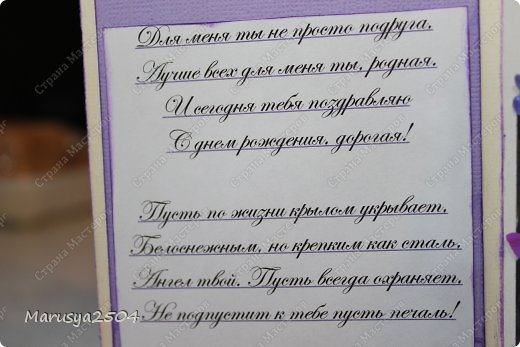 Для меня ты не просто подруга,
Лучше всех для меня ты, родная.
И сегодня тебя поздравляю
С днем рождения, дорогая!
Пусть по жизни крылом укрывает,
Белоснежным, но крепким как сталь,
Ангел твой. Пусть всегда охраняет,
Не подпустит к тебе пусть печаль!
Marusya2504